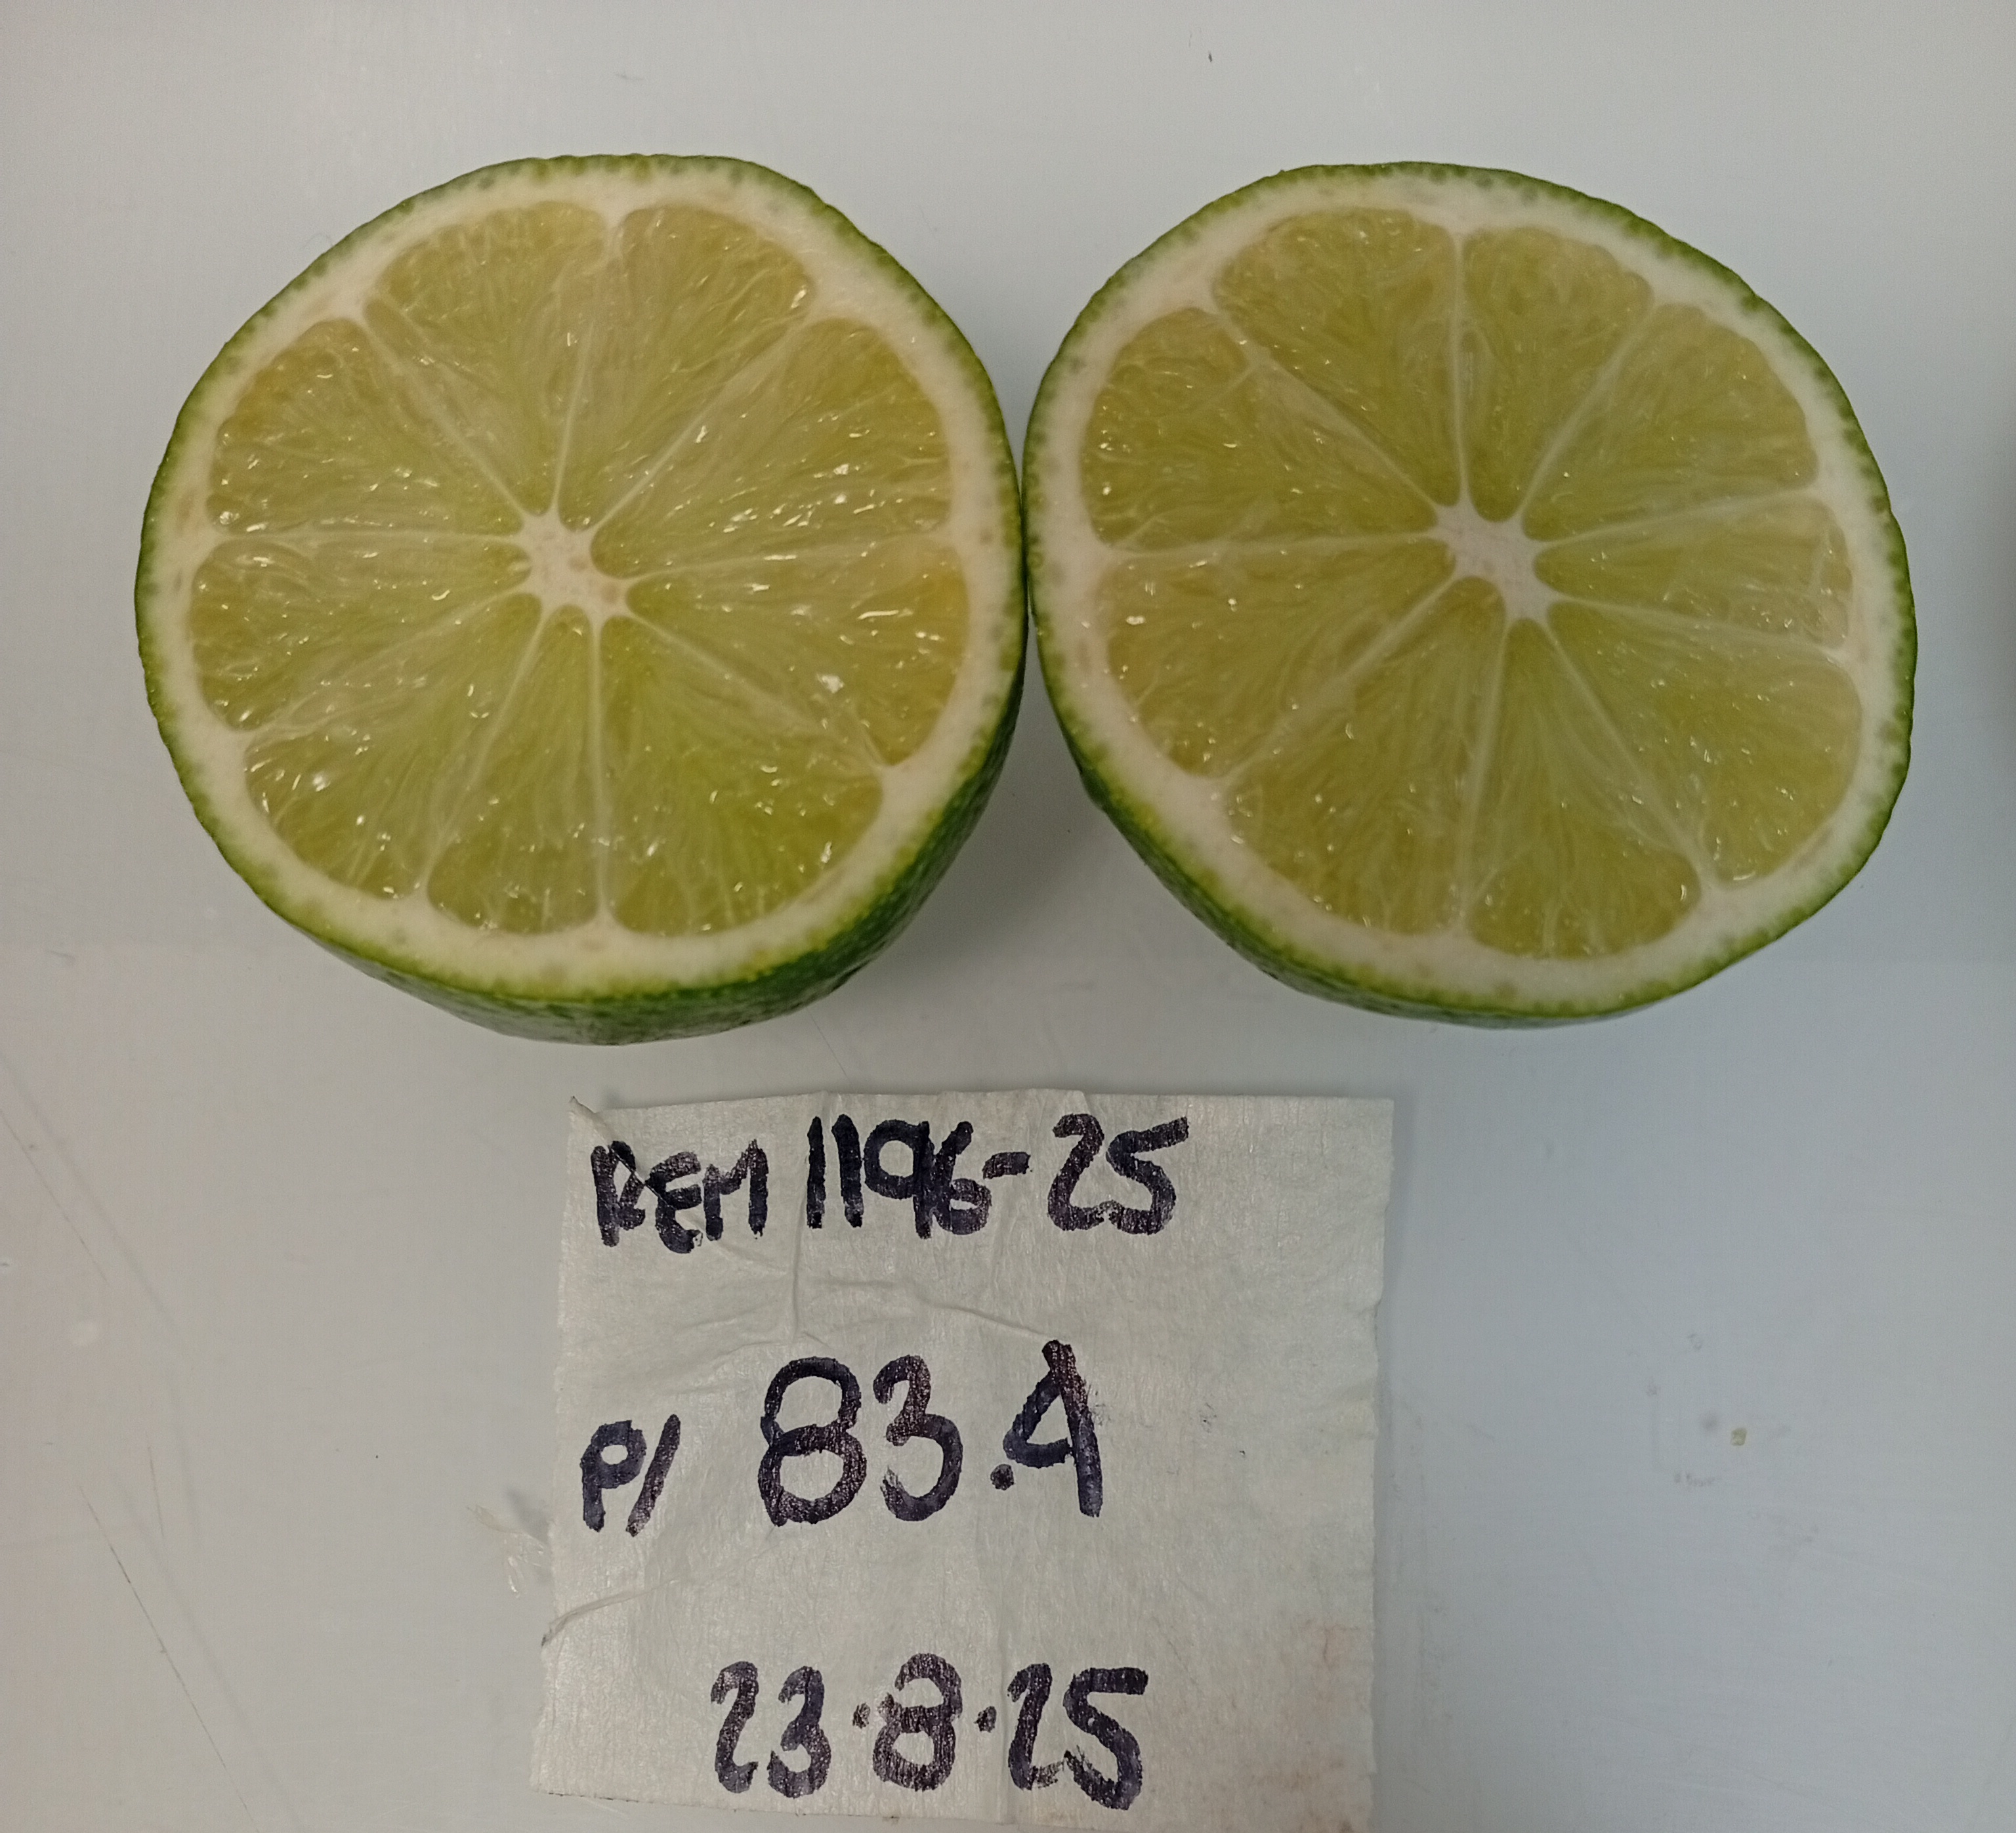 REM 1196-25
P/ 83.4
23.8.25